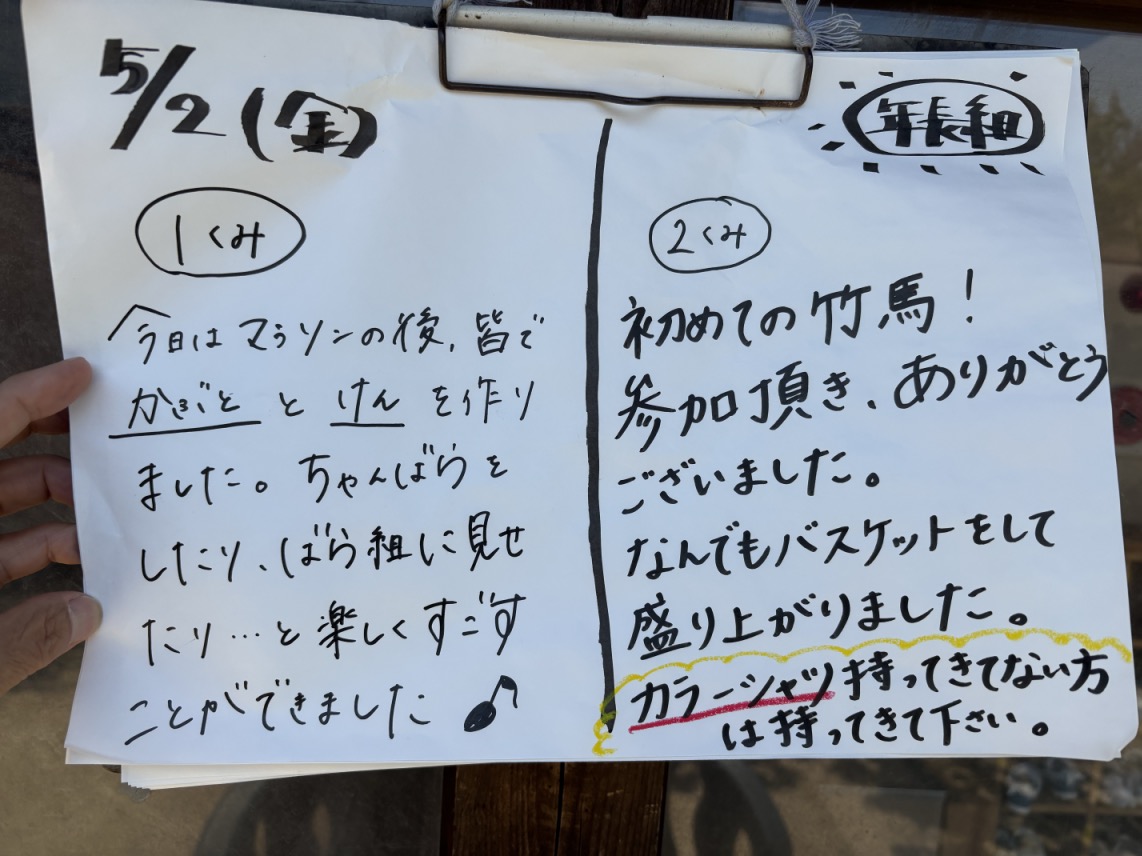 5/2(金)
年長組
1くみ
今日はマラソンの後、皆で
かぶと と けん を作り
ました。ちゃんばらを
したり、ばら組に見せ
たり…と楽しくすごす
ことができました♪
2くみ
初めての竹馬!
参加頂き、ありがとう
ございました。
なんでもバスケットをして
盛り上がりました。
カラーシャツ持ってきてない方
は持ってきて下さい。